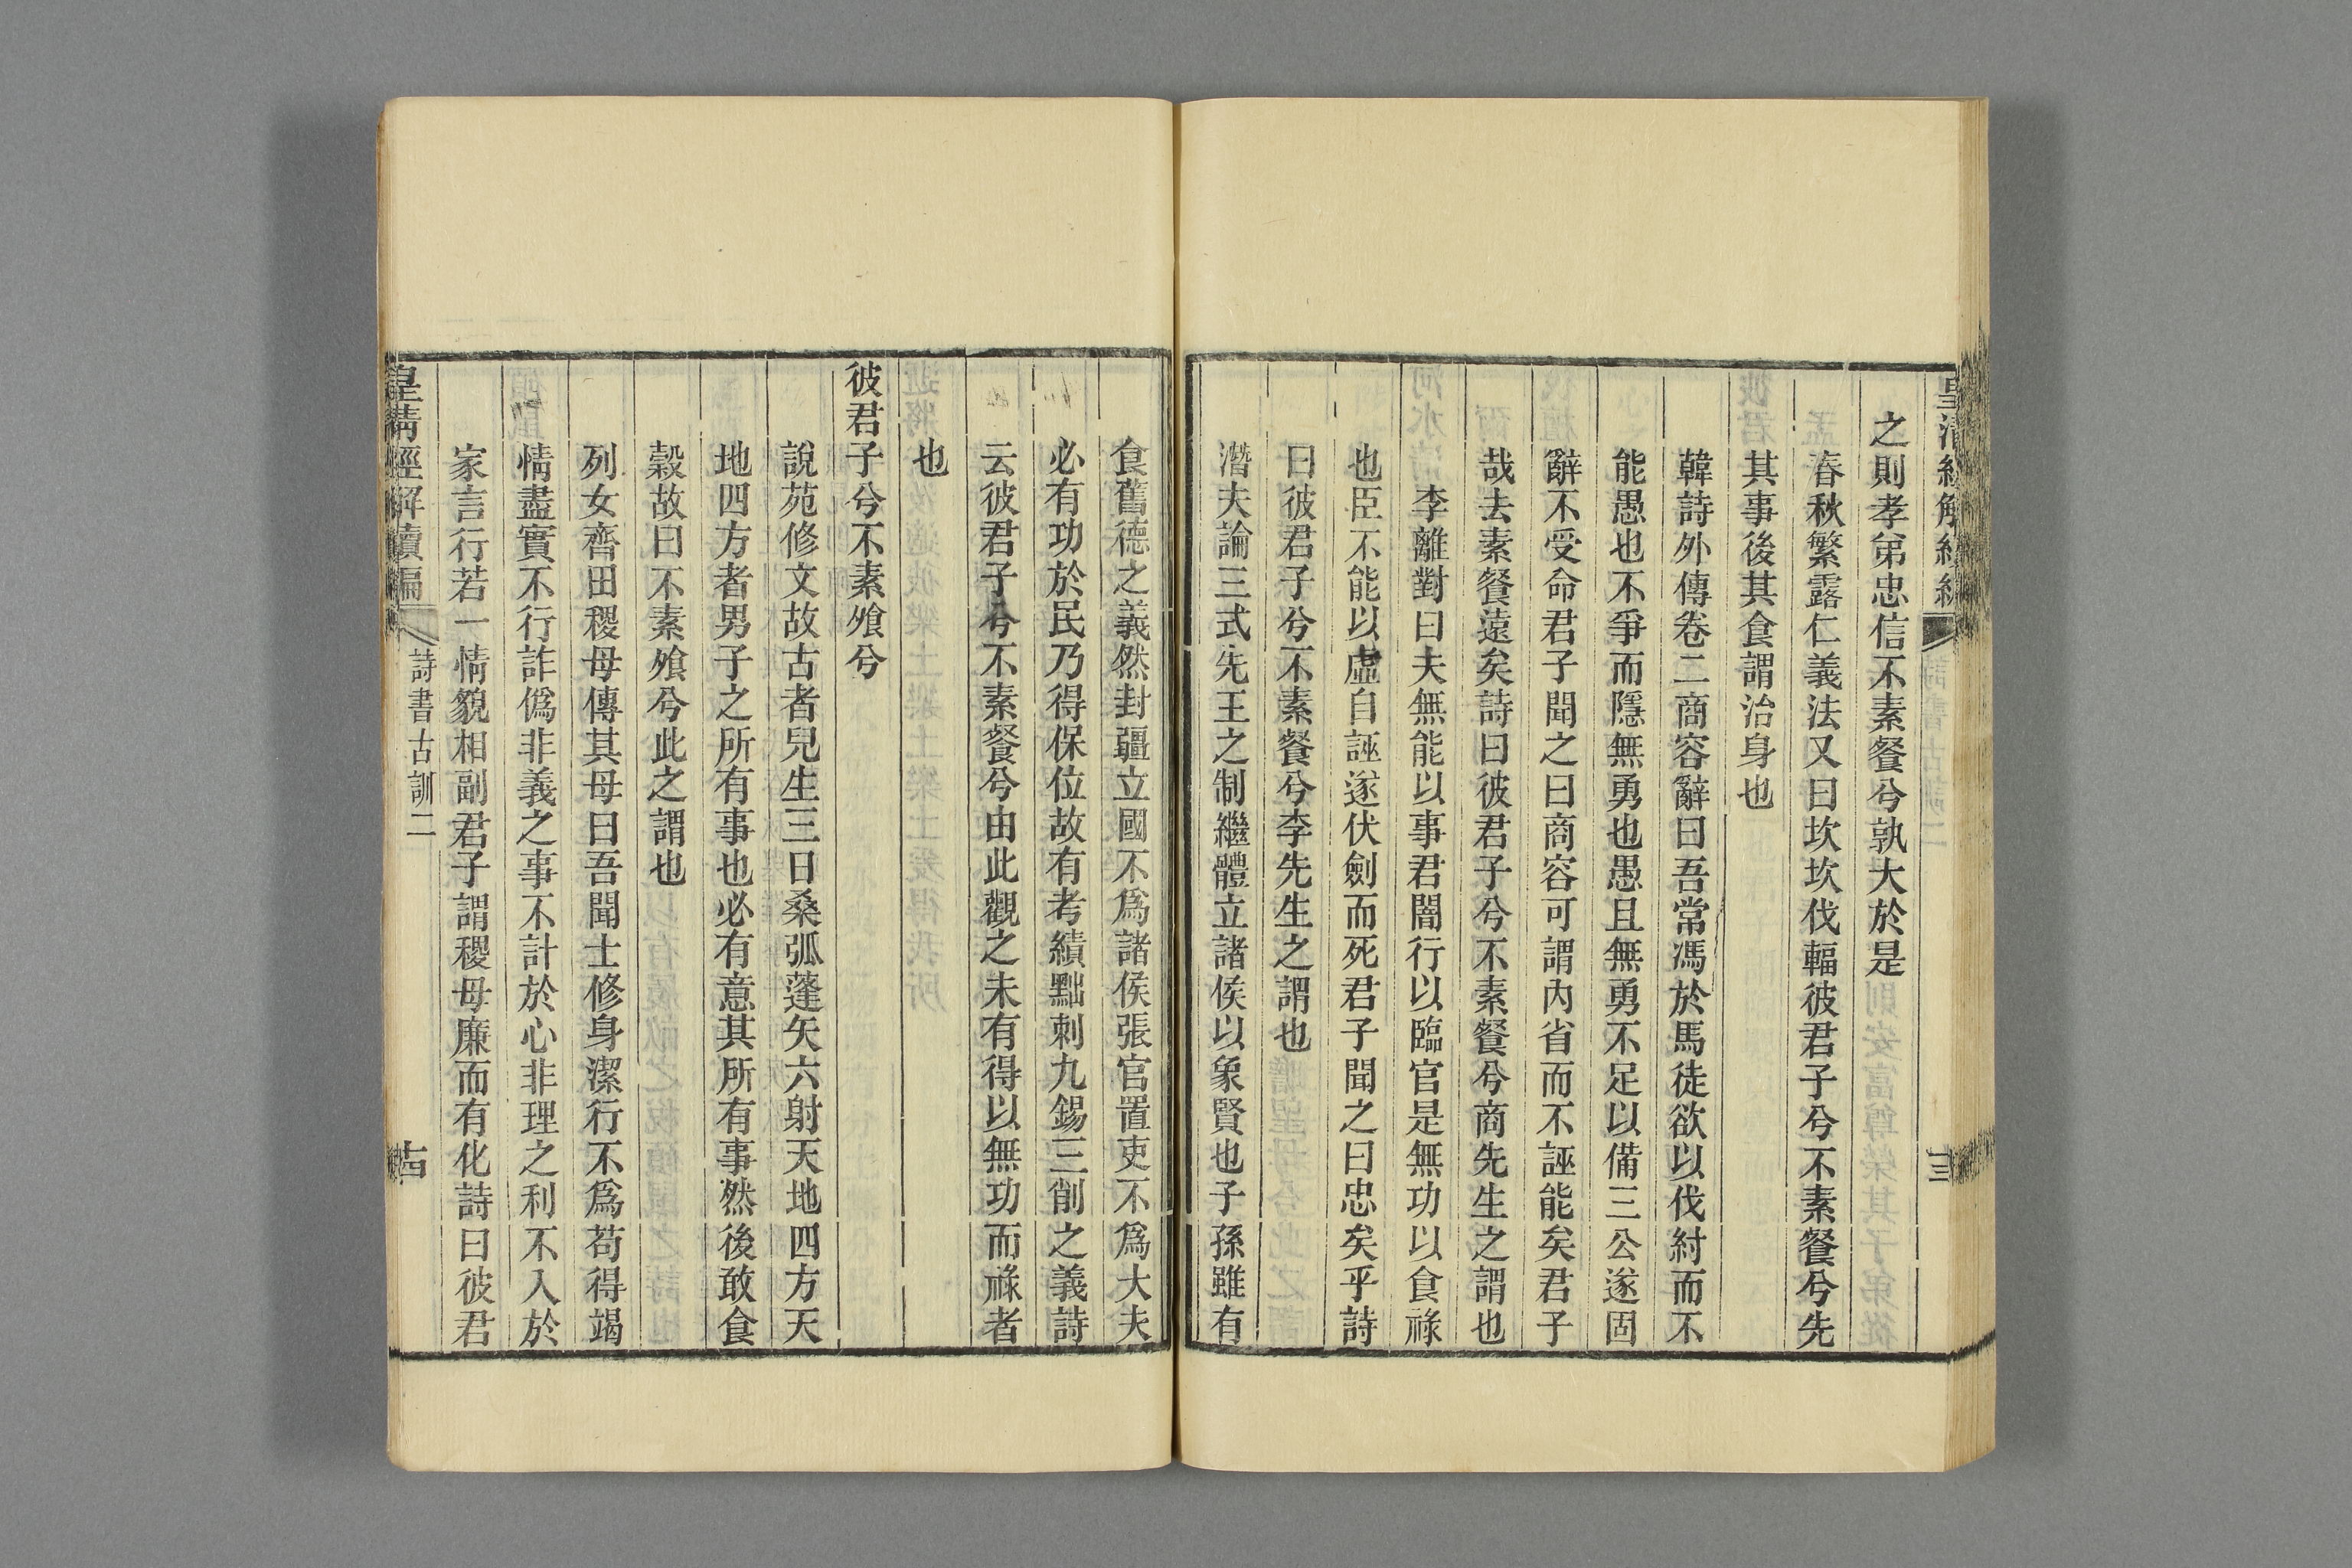 之則孝弟忠信不素餐兮孰大於是
春秋繁露仁義法又曰坎坎伐輻彼君子兮不素餐兮先
其事後其食謂治身也
韓詩外傳卷二商容辭曰吾常馮於馬徒欲以伐紂而不
能愚也不爭而隱無勇也愚且無勇不足以備三公遂固
辭不受命君子聞之曰商容可謂內省而不誣能矣君子
哉去素餐遠矣詩曰彼君子兮不素餐兮商先生之謂也
李離對曰夫無能以事君闇行以臨官是無功以食祿
也臣不能以虛自誣遂伏劍而死君子聞之曰忠矣乎詩
曰彼君子兮不素餐兮李先生之謂也
潛夫論三式先王之制繼體立諸侯以象賢也子孫雖有
食舊德之義然封疆立國不爲諸侯張官置吏不爲大夫
必有功於民乃得保位故有考績黜刺九錫三削之義詩
云彼君子兮不素餐兮由此觀之未有得以無功而祿者
也
彼君子兮不素飧兮
說苑修文故古者兒生三日桑弧蓬矢六射天地四方天
地四方者男子之所有事也必有意其所有事然後敢食
穀故曰不素飧兮此之謂也
列女齊田稷母傳其母曰吾聞士修身潔行不爲苟得竭
情盡實不行詐僞非義之事不計於心非理之利不入於
家言行若一情貌相副君子謂稷母廉而有化詩曰彼君
皇清經解續編 詩書古訓二 十四